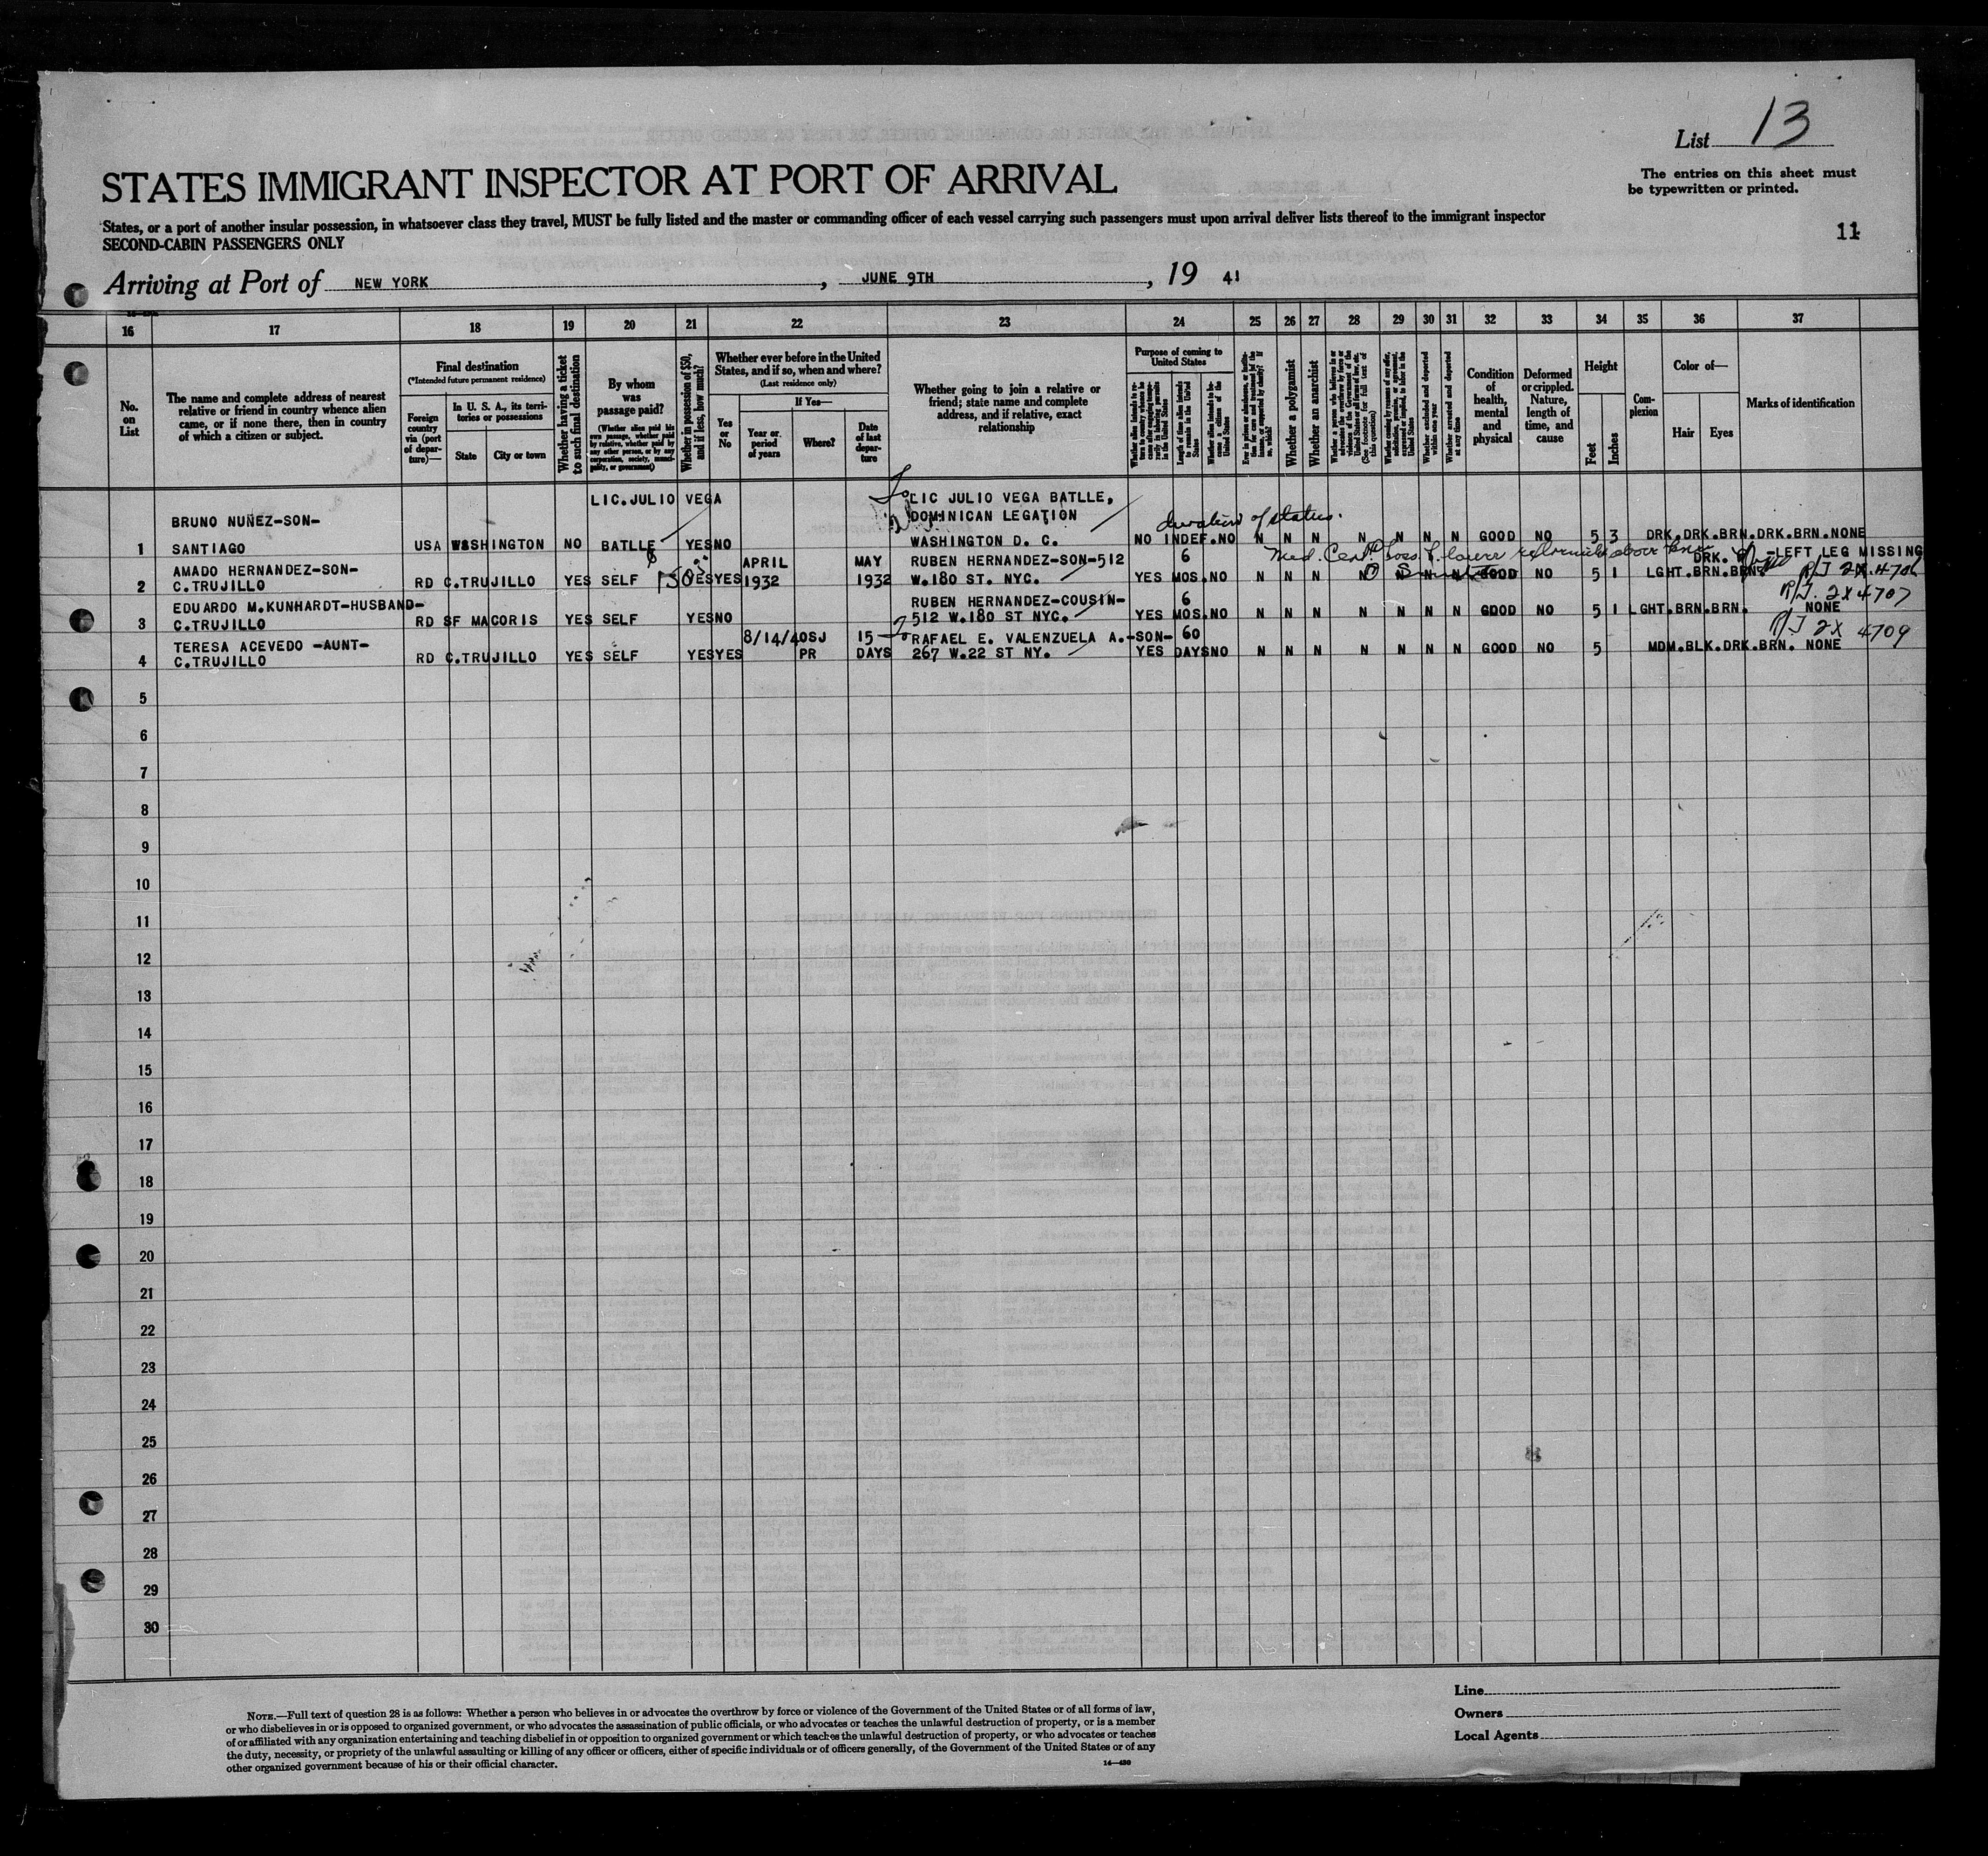 List 13
The entries on this sheet must
be typewritten or printed.
STATES IMMIGRANT INSPECTOR AT PORT OF ARRIVAL
States, or a port of another insular possession, in whatsoever class they travel, MUST be fully listed and the master or commanding officer of each vessel carrying such passengers must upon arrival deliver lists thereof to the immigrant inspector
SECOND-CABIN PASSENGERS ONLY
11
Arriving at Port of NEW YORK, JUNE 9TH, 19 41
16 17 18 19 20 21 22 23 24 25 26 27 28 29 30 31 32 33 34 35 36 37
No. on List
The name and complete address of nearest
relative or friend in country whence alien
came, or if none there, then in country
of which a citizen or subject.
Final destination
(*Intended future permanent residence)
Foreign country via (port of departure)—
In U. S. A., its territories or possessions
State
City or town
Whether having a ticket to such final destination
By whom was passage paid?
(Whether alien paid his own passage, whether paid by relative, whether paid by any other person, or by any corporation, society, municipality, or government)
Whether in possession of $50, and if less, how much?
Whether ever before in the United
States, and if so, when and where?
(Last residence only)
Yes or No
If Yes—
Year or period of years
Where?
Date of last departure
Whether going to join a relative or
friend; state name and complete
address, and if relative, exact
relationship
Purpose of coming to United States
Whether alien intends to return to country whence he came after engaging temporarily in laboring pursuits in the United States
Length of time alien intends to remain in the United States
Whether alien intends to become a citizen of the United States
Ever in prison or almshouse, or institution for care and treatment of the insane, or supported by charity? If so, which?
Whether a polygamist
Whether an anarchist
(See footnote for full text of this question)
Whether excluded and deported within one year
Whether arrested and deported at any time
Condition of health, mental and physical
Deformed or crippled. Nature, length of time, and cause
Height
Feet
Inches
Complexion
Color of—
Hair
Eyes
Marks of identification
LIC.JULIO VEGA LIC JULIO VEGA BATLLE,
BRUNO NUÑEZ-SON- DOMINICAN LEGATION duration of status.
1 SANTIAGO USA WASHINGTON NO BATLLE YES NO WASHINGTON D. C. NO INDEF.NO N N N N N N N GOOD NO 5 3 DRK.DRK.BRN.DRK.BRN.NONE
AMADO HERNANDEZ-SON- APRIL MAY RUBEN HERNANDEZ-SON-512 6 Med. Cert. Loss L. lower extremity above knee DRK. -LEFT LEG MISSING
2 C.TRUJILLO RD C.TRUJILLO YES SELF 150 YES YES 1932 1932 W.180 ST. NYC. YES MOS.NO N N N N N N N GOOD NO 5 1 LGHT.BRN.BRN.
EDUARDO M.KUNHARDT-HUSBAND- RUBEN HERNANDEZ-COUSIN- 6 R/J. 2X4707
3 C.TRUJILLO RD SF MACORIS YES SELF YES NO 512 W.180 ST NYC. YES MOS.NO N N N N N N N GOOD NO 5 1 LGHT.BRN.BRN. NONE
TERESA ACEVEDO -AUNT- 8/14/40SJ 15- RAFAEL E. VALENZUELA A.-SON- 60 R/J 2X 4709
4 C.TRUJILLO RD C.TRUJILLO YES SELF YES YES PR DAYS 267 W.22 ST NY. YES DAYS NO N N N N N N N GOOD NO 5 MDM.BLK.DRK.BRN. NONE
5
6
7
8
9
10
11
12
13
14
15
16
17
18
19
20
21
22
23
24
25
26
27
28
29
30
NOTE.—Full text of question 28 is as follows: Whether a person who believes in or advocates the overthrow by force or violence of the Government of the United States or of all forms of law,
or who disbelieves in or is opposed to organized government, or who advocates the assassination of public officials, or who advocates or teaches the unlawful destruction of property, or is a member
of or affiliated with any organization entertaining and teaching disbelief in or opposition to organized government or which teaches the unlawful destruction of property, or who advocates or teaches
the duty, necessity, or propriety of the unlawful assaulting or killing of any officer or officers, either of specific individuals or of officers generally, of the Government of the United States or of any
other organized government because of his or their official character.
14—430
Line
Owners
Local Agents